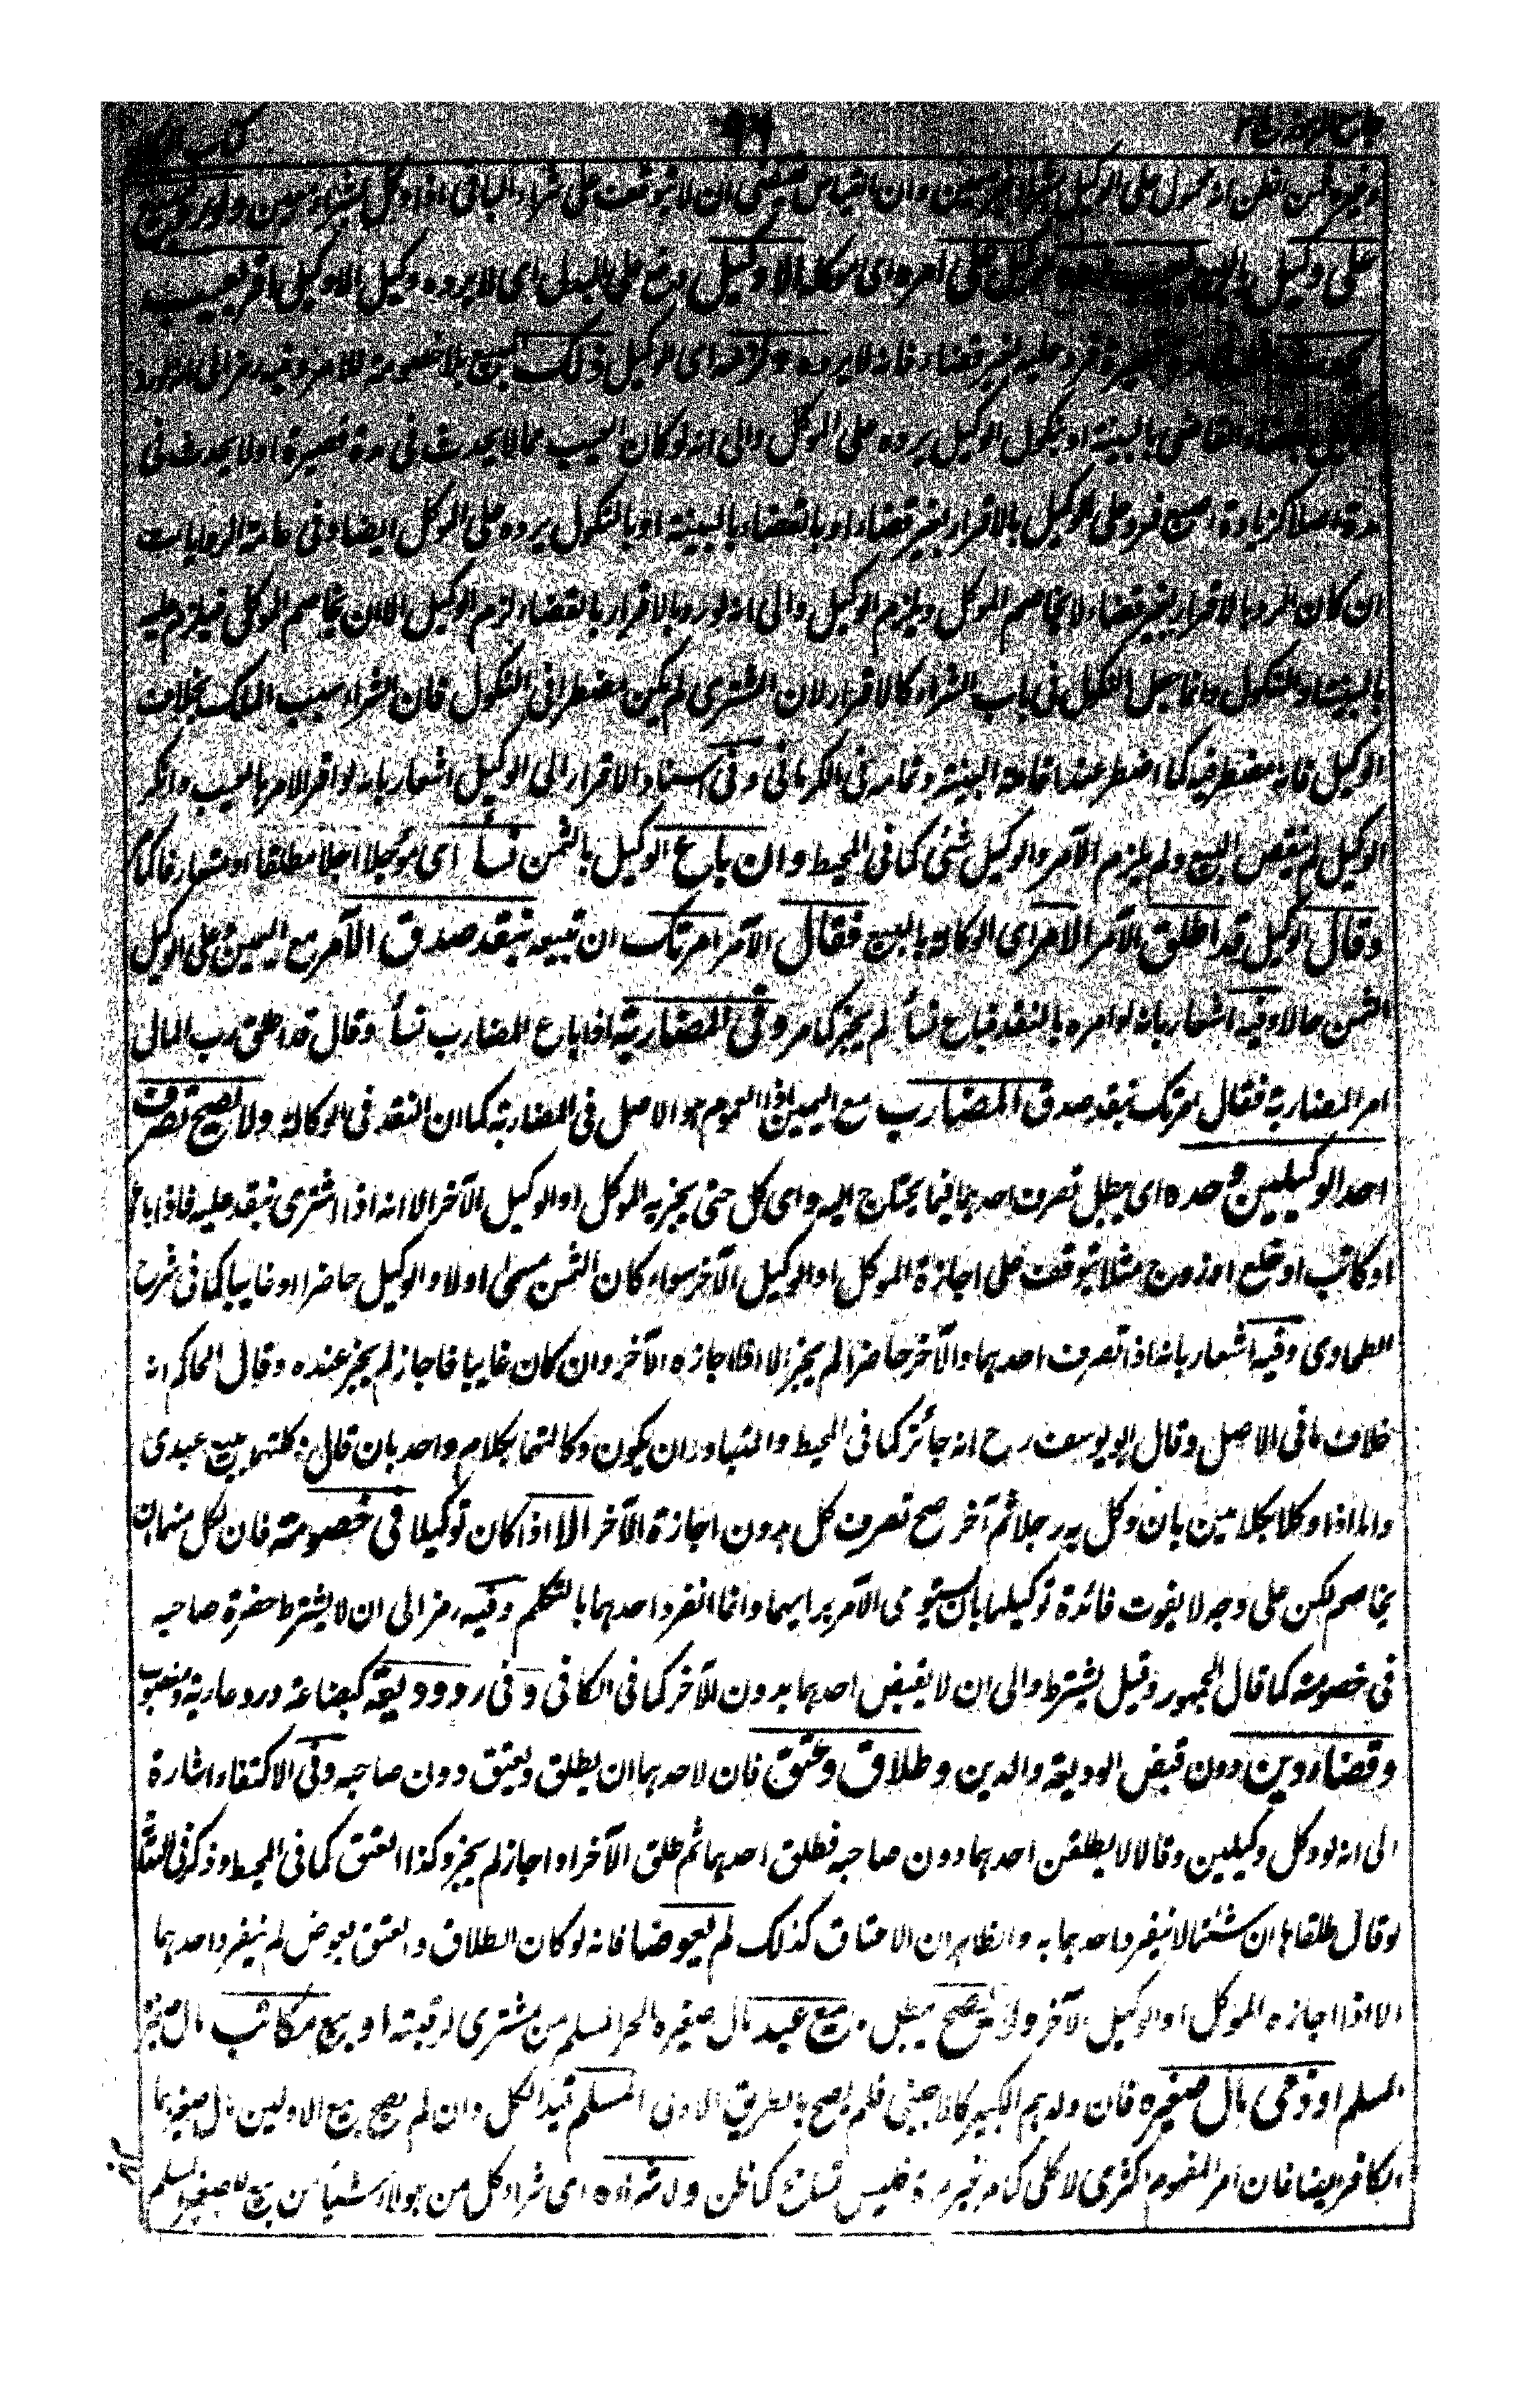 كتاب الوكالة
وغيره فمن الظن انه محمول على الوكيل بشراء غير معين وان القياس يقتضى ان لا يتوقف على شراء الباقى اذا وكل بشراء معين ولو رد مبيع
على وكيل بالبيع بعيب رده وكيل على امره اى موكله الا وكيل رفع على البدل اى لا يرده وكيل الا وكيل اقر بعيب
يحدث فرد عليه بغير قضاء فانه لا يرده ولزمه اى الوكيل ذلك المبيع بلا خصومة للامر وفيه رمز الى انه لو رد
بقضاء القاضى بالبينة او بنكول الوكيل يرده على الموكل والى انه لو كان العيب مما لا يحدث فى مدة قصيرة او لا يحدث فى
مدة اصلا كزيادة اصبع فرد على الوكيل بالاقرار بغير قضاء او بالقضاء بالبينة او بالنكول يرده على الموكل ايضا وفى عامة الروايات
ان كان الرد بالاقرار بغير قضاء لا يخاصم الموكل ويلزم الوكيل والى انه لو رد بالاقرار بالقضاء لزم الوكيل الا ان يخاصم الموكل فيلزم عليه
بالبينة او النكول وانما جعل النكول فى باب الشراء كالاقرار لان المشترى لم يكن مضطرا فى النكول فان الشراء سبب الملك بخلاف
الوكيل فانه مضطر فيه كما اضطر عند اقامة البينة وتمامه فى الكرمانى وفى اسناد الاقرار الى الوكيل اشعار بانه لو اقر الامر بالعيب وانكر
الوكيل لم ينقض البيع ولم يلزم الآمر والوكيل شئ كما فى المحيط وان باع الوكيل بالثمن نسأ اى مؤجلا اجلا مطلقا او متعارفا كما
وقال الوكيل قد اطلق الآمر الامر اى الوكالة بالبيع فقال الآمر امرتك ان تبيعه بنقد صدق الآمر مع اليمين على الوكيل
الثمن حالا وفيه اشعار بانه لو امره بالنقد فباع نسأ لم يجز كما مر وفى المضاربة اذا باع المضارب نسأ وقال قد اطلق رب المال
امر المضاربة فقال امرتك بنقد صدق المضارب مع اليمين اذ العموم هو الاصل فى المضاربة كما ان النقد فى الوكالة ولا يصح تصرف
احد الوكيلين وحده اى يبطل تصرف احدهما فيما يحتاج اليه راى كل حتى يجيزه الموكل او الوكيل الآخر الا انه اذا اشترى ينفد عليه فاذا باع
او كاتب او خلع او زوج مثلا يتوقف على اجازة الموكل او الوكيل الآخر سواء كان الثمن مسمى او لا والوكيل حاضرا او غايبا كما فى شرح
الطحاوى وفيه اشعار بانه اذا تصرف احدهما والآخر حاضر لم يجز الا اذا اجازه الآخر وان كان غايبا فاجاز لم يجز عنده وقال الحاكم انه
خلاف ما فى الاصل وقال ابو يوسف رح انه جائز كما فى المحيط والمتبادر ان يكون وكالتهما بكلام واحد بان قال وكلتهما ببيع عبدى
واما اذا وكلا بكلامين بان وكل به رجلا ثم آخر صح تصرف كل بدون اجازة الآخر الا اذا كان توكيلا فى خصومة فان لكل منهما ان
يخاصم لكن على وجه لا يفوت فائدة توكيلهما بان يستوى الآمر برايهما وانما انفرد احدهما بالتكلم وفيه رمز الى ان لا يشترط حضرة صاحبه
فى خصومته كما قال الجمهور وقيل يشترط والى ان لا يقبض احدهما بدون الآخر كما فى الكافى وفى رد وديعة كبضاعة ورد عارية ومغصوب
وقضاء دين دون قبض الوديعة والدين وطلاق وعتق فان لاحدهما ان يطلق ويعتق دون صاحبه وفى الاكتفاء اشارة
الى انه لو وكل وكيلين وقال لا يطلقن احدهما دون صاحبه فطلق احدهما ثم طلق الآخر او اجاز لم يجز وكذا العتق كما فى المحيط وذكر فى
لو قال طلقاها ان شئتما لا ينفرد احدهما به والظاهر ان الاعتاق كذلك لم يعوضا فانه لو كان الطلاق والعتق بعوض لم ينفرد احدهما
الا اذا اجازه الموكل او الوكيل الآخر ولا يصح بيع عبد مال صغيره الحر المسلم من مشترى لرقيته او بيع مكاتب مال صغيره
المسلم او ذمى مال صغيره فان ولدهم الكبير كالاجنبى فلم يصح بالطريق الاولى المسلم قيد الكل وان لم يصح بيع الاولين مال صغيرهما
الكافر ايضا فان امر المفهوم اكثرى لا كلى كما مر غير مرة فليس كما ظن ولا شراه اى شراء كل من هؤلاء شيأ من